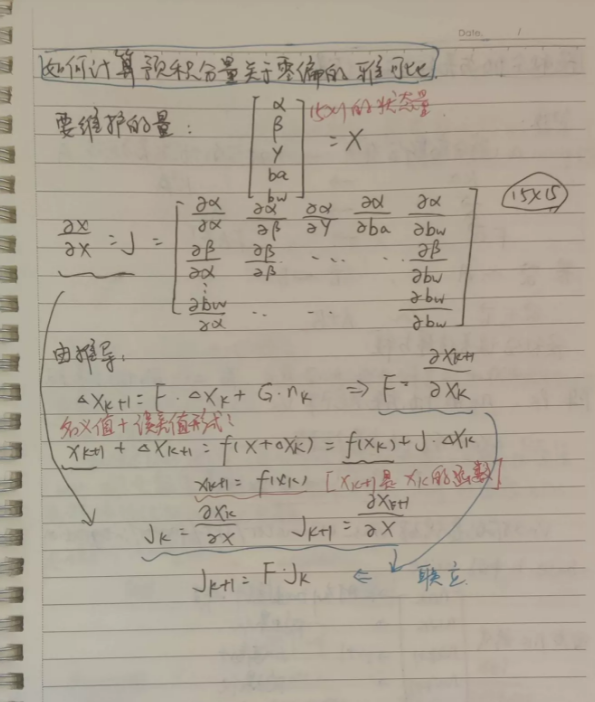 Date.      /
如何计算预积分量关于零偏的雅可比.
要维护的量: [α β γ ba bw] = X 15x1的状态量
∂X/∂X = J = [∂α/∂α ∂α/∂β ∂α/∂γ ∂α/∂ba ∂α/∂bw 15X15
∂β/∂α ∂β/∂β ... ... ∂β/∂bw
⋮
∂bw/∂α .. ... ∂bw/∂bw]
由推导:
△XK+1 = F · △XK + G · nK ⇒ F = ∂XK+1/∂XK
名义值+误差值形式:
XK+1 + △XK+1 = f(X+△XK) = f(XK) + J · △XK
XK+1 = f(XK) [XK+1是XK的函数]
JK = ∂XK/∂X JK+1 = ∂XK+1/∂X
JK+1 = F · JK ⇐ 联立